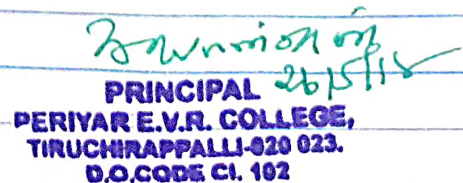 26/5/15
PRINCIPAL
PERIYAR E.V.R. COLLEGE,
TIRUCHIRAPPALLI-620 023.
D.O.CODE CI. 102